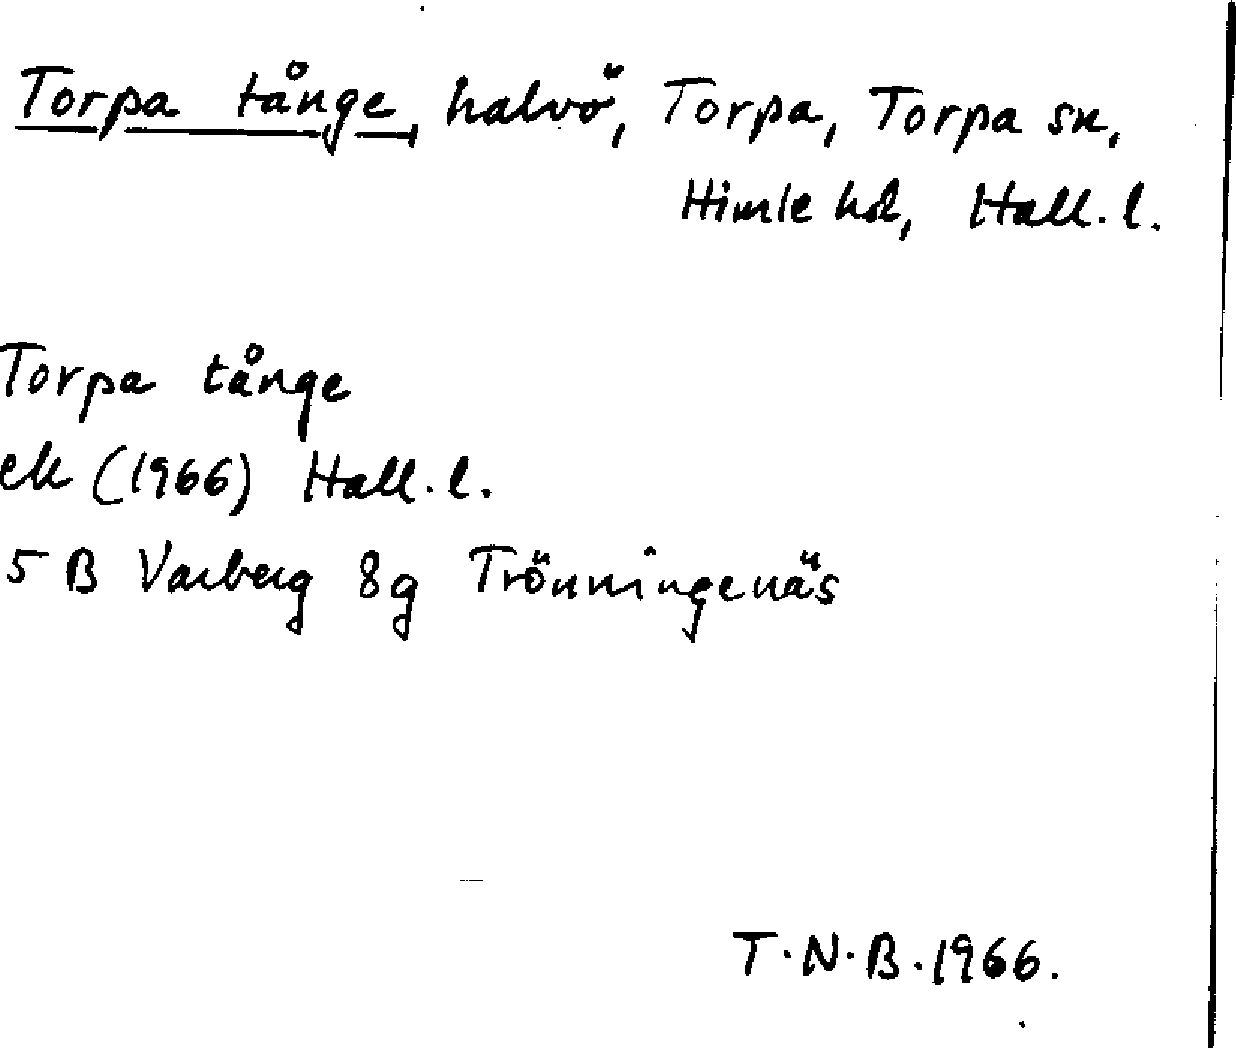 Torpa tånge, halvö, Torpa, Torpa sn,
Himle hd, Hall. l.
Torpa tånge
ek (1966) Hall. l.
5 B Varberg 8g Trönningenäs
T. N. B. 1966.